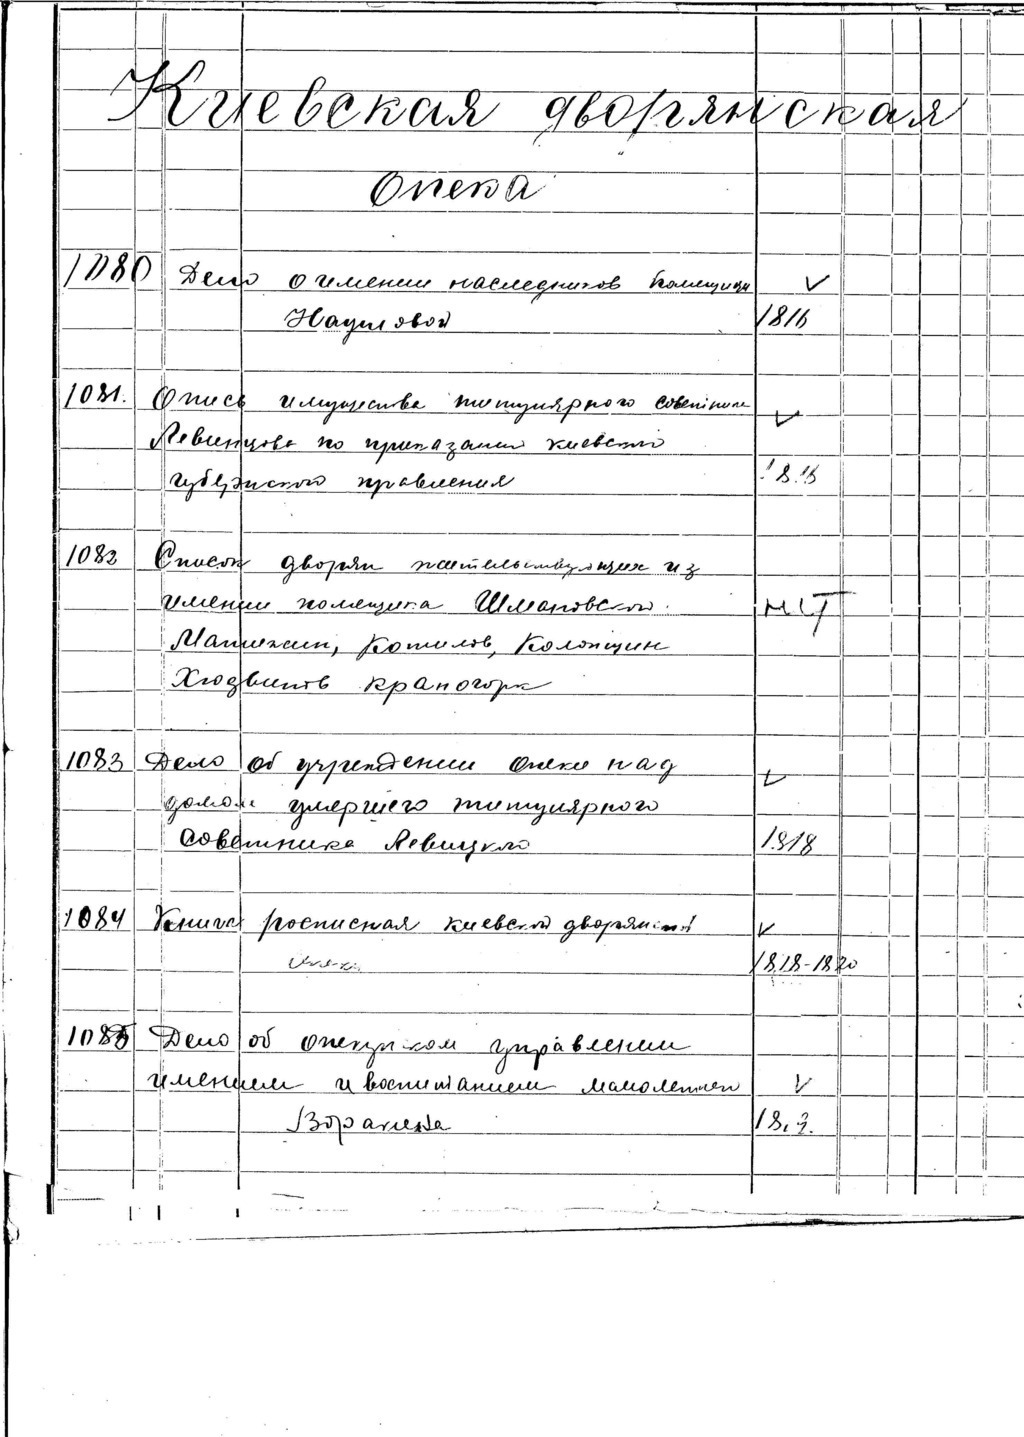 Киевская дворянская
Опека
1080 Дело о имении наследников помещицы
Наумовой 1816
1081. Опись имущества титулярного советника
по приказанию киевского
губернского правления
1082 Список дворян жительствующих из
имении помещика Шмановского. нет
1083 Дело об учреждении опеки над
домом умершего титулярного
советника Левицкого 1818
1084 Книга росписная киевской дворянской
опеки 1818-1820
1085 Дело об опекунском управлении
имением и воспитанием малолетней